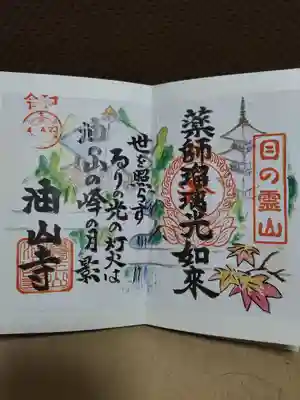 目の霊山
薬師瑠璃光如来
世を照らす
るりの光の灯火は
油山の峰の月影
油山寺
令和